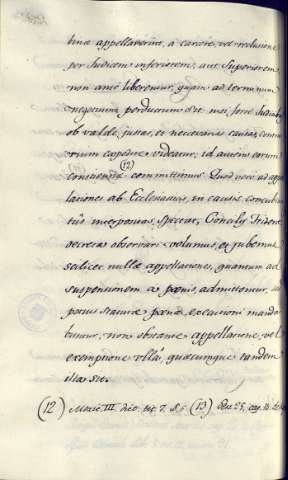 tinæ appellaverint, a carcere, vel reclusione
per Judicem inferiorem, aut Superiorem
non ante liberentur, quam ad terminum
negotium perductum sit nisi forte Judici
ob valde justas, et necessarias causas, contra
rium expedire videatur, id autem eorum
conscientiæ committimus (12) Quod vero ad appe
lationes ab Ecclesiasticis, in causis concubina
tûs interpositas, spectat, Concilij Tridentini
decreta observari volumus, et jubemus
scilicet nullæ appellationes, quantum ad
suspensionem a pœnis, admittantur, sed
potius statutæ pœnæ executioni manda
buntur, non obstante appellatione, vel
exemptione ulla, quæcumque tandem
illa sit.
(12) Mexic. III. dic. tit. 7. § 5. (13) Sess. 25, cap. 14.